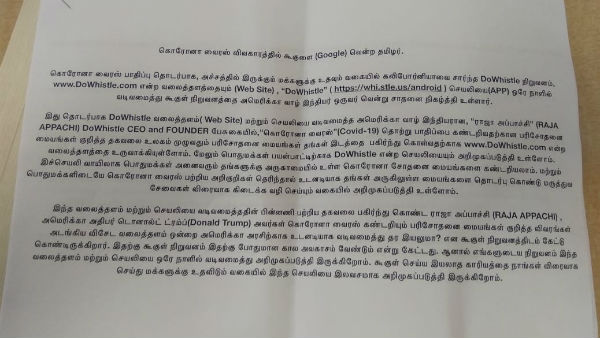 கொரோனா வைரஸ் விவகாரத்தில் கூகுளை (Google) வென்ற தமிழர்.
கொரோனா வைரஸ் பாதிப்பு தொடர்பாக, அச்சத்தில் இருக்கும் மக்களுக்கு உதவும் வகையில் கலிபோர்னியாவை சார்ந்த DoWhistle நிறுவனம்,
www.DoWhistle.com என்ற வலைத்தளத்தையும் (Web Site) , "DoWhistle" ( https://whi.stle.us/android ) செயலியை(APP) ஒரே நாளில்
வடிவமைத்து கூகுள் நிறுவனத்தை அமெரிக்கா வாழ் இந்தியர் ஒருவர் வென்று சாதனை நிகழ்த்தி உள்ளார்.
இது தொடர்பாக DoWhistle வலைத்தளம்( Web Site) மற்றும் செயலியை வடிவமைத்த அமெரிக்கா வாழ் இந்தியரான, "ராஜா அப்பாச்சி" (RAJA
APPACHI) DoWhistle CEO and FOUNDER பேசுகையில்,"கொரோனா வைரஸ்"(Covid-19) தொற்று பாதிப்பை கண்டறிவதற்கான பரிசோதனை
மையங்கள் குறித்த தகவலை உலகம் முழுவதும் பரிசோதனை மையங்கள் தங்கள் இடத்தை பகிர்ந்து கொள்வதற்காக www.DoWhistle.com என்ற
வலைத்தளத்தை உருவாக்கியுள்ளோம். மேலும் பொதுமக்கள் பயன்பாட்டிற்காக DoWhistle என்ற செயலியையும் அறிமுகப்படுத்தி உள்ளோம்.
இச்செயலி வாயிலாக பொதுமக்கள் அனைவரும் தங்களுக்கு அருகாமையில் உள்ள கொரோனா சோதனை மையங்களை கண்டறியலாம். மற்றும்
பொதுமக்களிடையே கொரோனா வைரஸ் பற்றிய அறிகுறிகள் தெரிந்தால் உடனடியாக தங்கள் அருகிலுள்ள மையங்களை தொடர்பு கொண்டு மருத்துவ
சேவைகள் விரைவாக கிடைக்க வழி செய்யும் வகையில் அறிமுகப்படுத்தி உள்ளோம்.
இந்த வலைத்தளம் மற்றும் செயலியை வடிவமைத்ததின் பின்னணி பற்றிய தகவலை பகிர்ந்து கொண்ட ராஜா அப்பாச்சி (RAJA APPACHI) ,
அமெரிக்கா அதிபர் டொனால்ட் ட்ரம்ப்(Donald Trump) அவர்கள் கொரோனா வைரஸ் கண்டறியும் பரிசோதனை மையங்கள் குறித்த விவரங்கள்
அடங்கிய விசேட வலைத்தளம் ஒன்றை அமெரிக்கா அரசிற்காக உடனடியாக வடிவமைத்து தர இயலுமா? என கூகுள் நிறுவனத்திடம் கேட்டு
கொண்டிருக்கிறார். இதற்கு கூகுள் நிறுவனம் இதற்கு போதுமான கால அவகாசம் வேண்டும் என்று கேட்டது. ஆனால் எங்களுடைய நிறுவனம் இந்த
வலைத்தளம் மற்றும் செயலியை ஒரே நாளில் வடிவமைத்து அறிமுகப்படுத்தி இருக்கிறோம். கூகுள் செய்ய இயலாத காரியத்தை நாங்கள் விரைவாக
செய்து மக்களுக்கு உதவிடும் வகையில் இந்த செயலியை இலவசமாக அறிமுகப்படுத்தி இருக்கிறோம்.